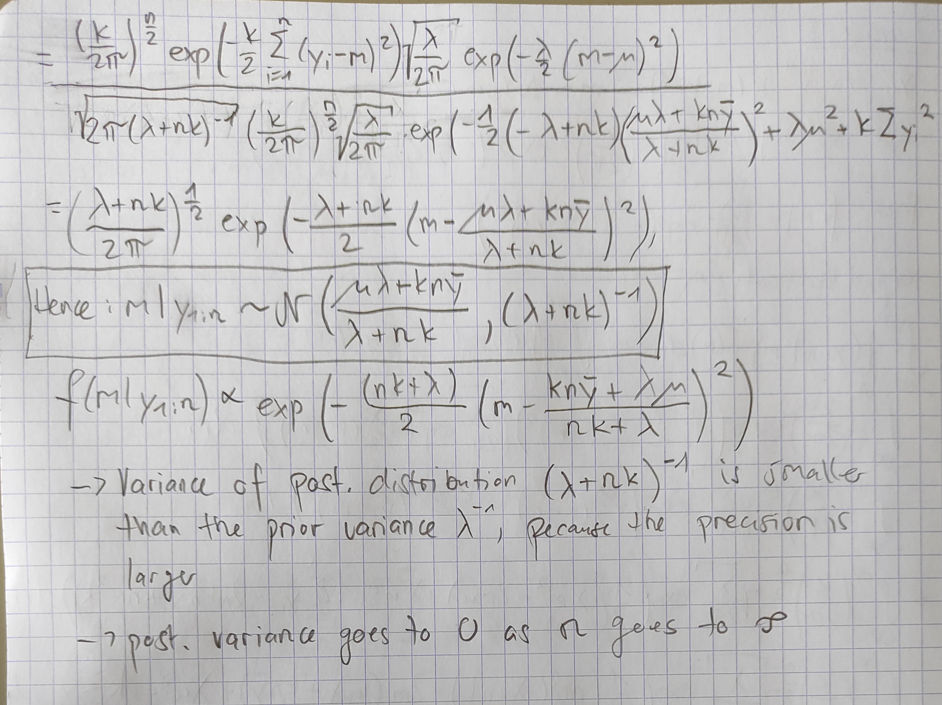 = (k/2π)^(n/2) exp(-k/2 Σ_{i=1}^{n} (y_i-m)^2) √(λ/2π) exp(-λ/2 (m-μ)^2)
√(2π(λ+nk)^-1) (k/2π)^(n/2) √(λ/2π) exp(-1/2 (-λ+nk) ((μλ + knȳ)/(λ+nk))^2 + λμ^2 + k Σ y_i^2
= ((λ+nk)/2π)^(1/2) exp(-(λ+nk)/2 (m - (μλ + knȳ)/(λ+nk))^2),
Hence: m | y_{1:n} ~ N((μλ+knȳ)/(λ+nk), (λ+nk)^-1)
f(m|y_{1:n}) ∝ exp(-(nk+λ)/2 (m - (knȳ + λμ)/(nk+λ))^2)
-> Variance of post. distribution (λ+nk)^-1 is smaller
than the prior variance λ^-1, because the precision is
larger
-> post. variance goes to 0 as n goes to ∞